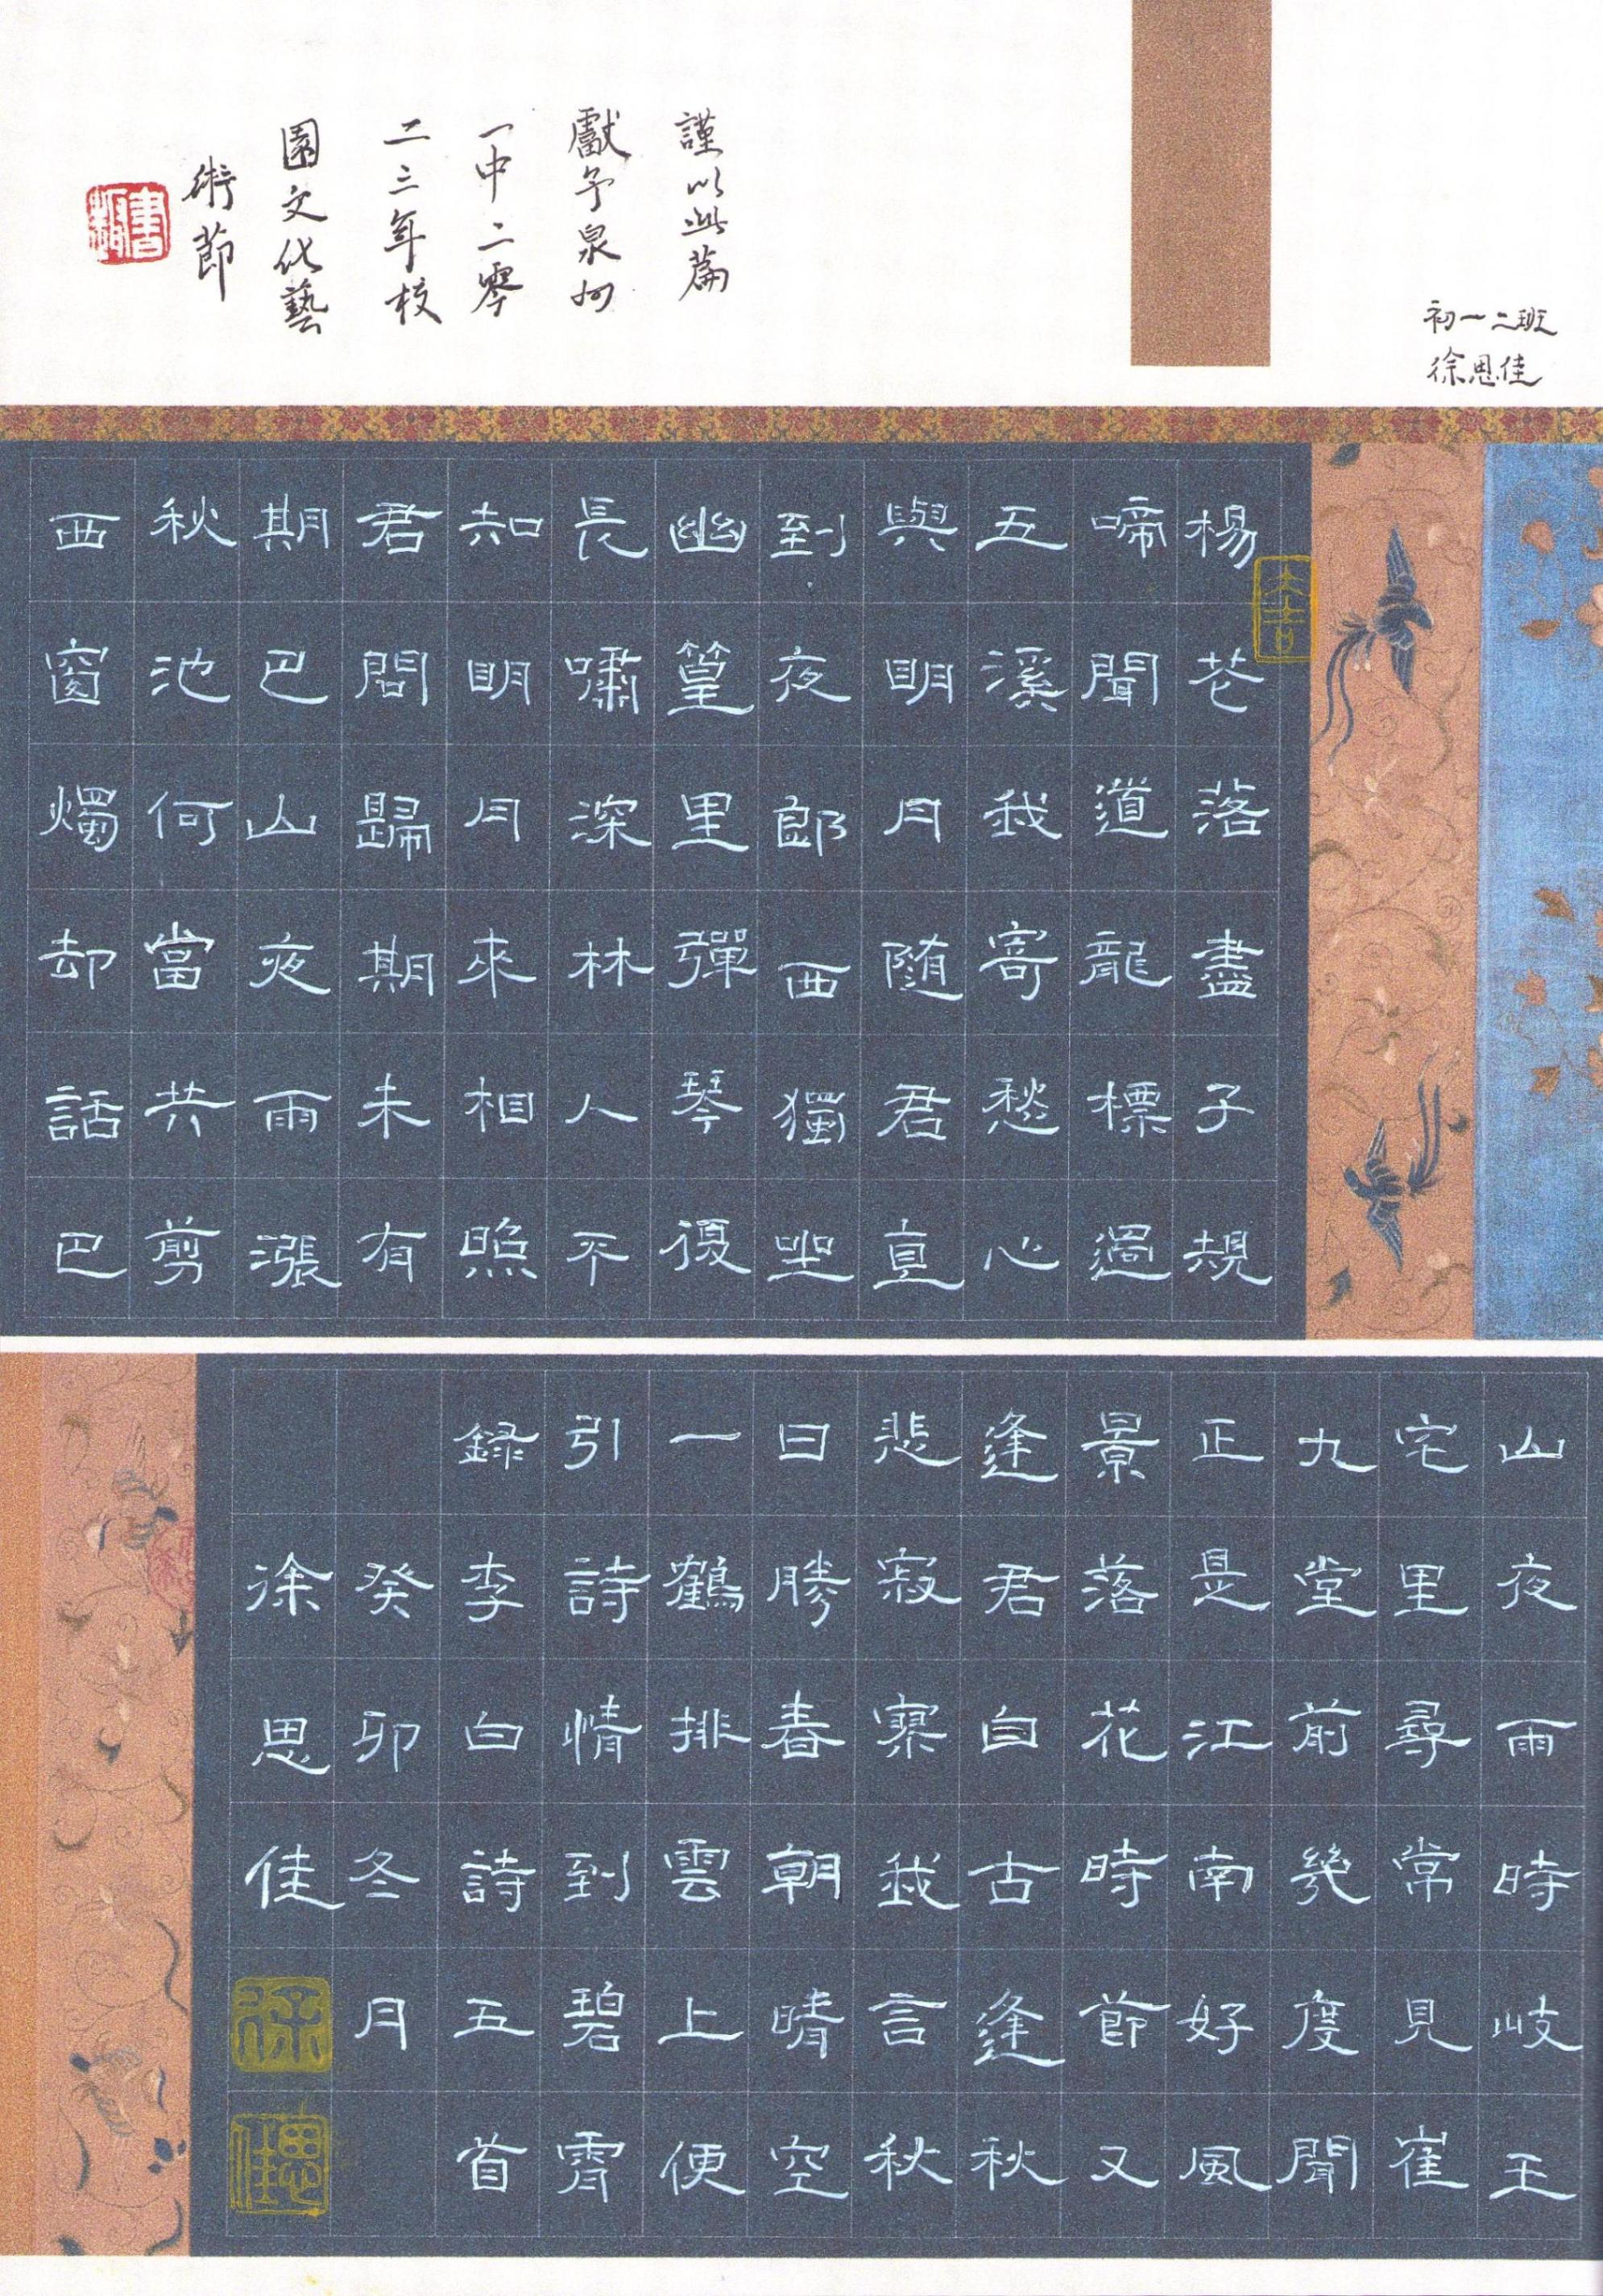 初一二班
徐思佳
謹以此篇
獻予泉州
一中二零
二三年校
園文化藝
術節
大吉
楊芲落盡子規
啼聞道龍標過
五溪我寄愁心
與明月随君直
到夜郎西獨坐
幽篁里彈琴復
長嘯深林人不
知明月來相照
君問歸期未有
期巴山夜雨漲
秋池何當共剪
西窗燭却話巴
山夜雨時岐王
宅里尋常見崔
九堂前幾度聞
正是江南好風
景落花時節又
逢君自古逢秋
悲寂寥我言秋
日勝春朝晴空
一鶴排雲上便
引詩情到碧霄
録李白詩五首
癸卯冬月
徐思佳
徐
思佳